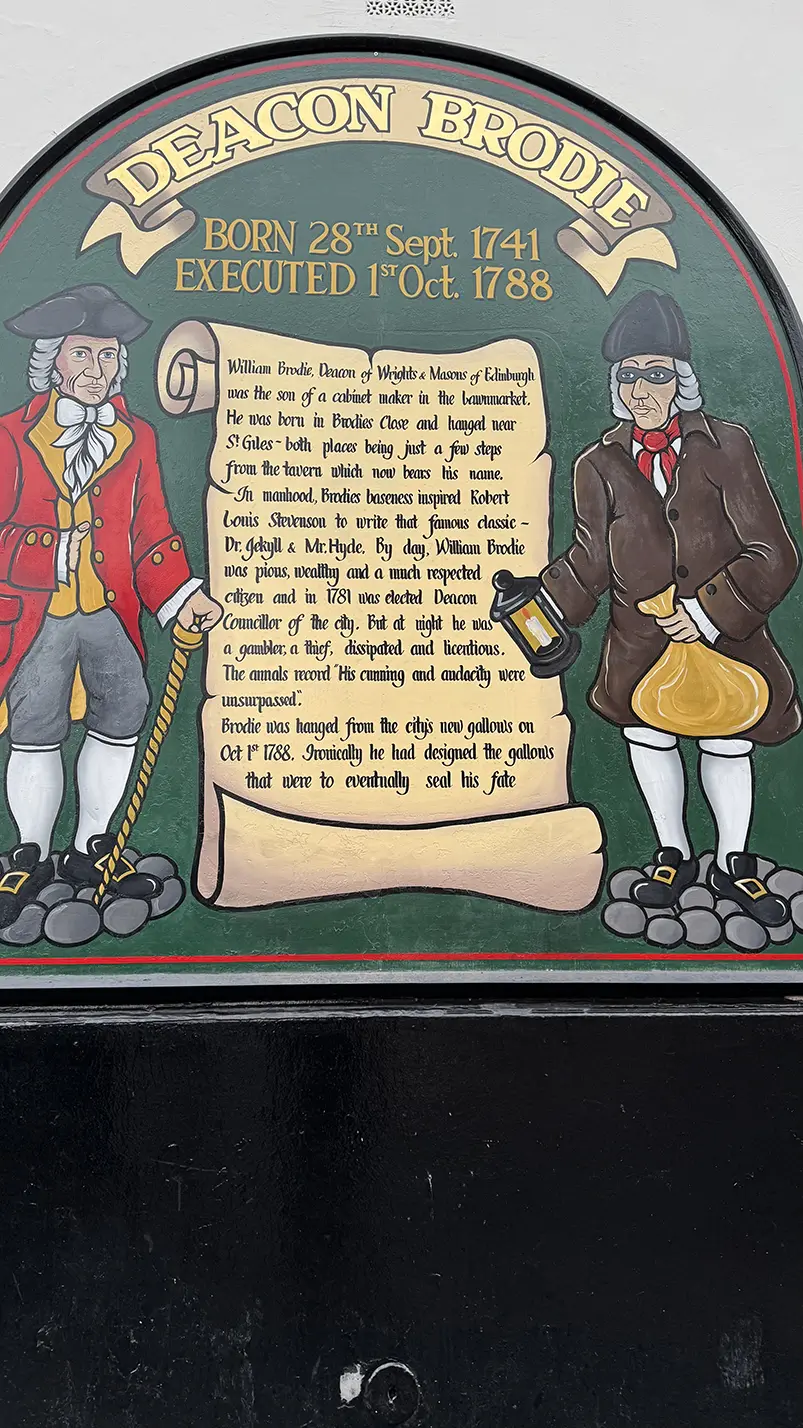 DEACON BRODIE
BORN 28TH Sept. 1741
EXECUTED 1ST Oct. 1788
William Brodie, Deacon of Wrights & Masons of Edinburgh
was the son of a cabinet maker in the Lawnmarket.
He was born in Brodies Close and hanged near
St Giles - both places being just a few steps
from the tavern which now bears his name.
In manhood, Brodies baseness inspired Robert
Louis Stevenson to write that famous classic -
Dr. Jekyll & Mr. Hyde. By day, William Brodie
was pious, wealthy and a much respected
citizen and in 1781 was elected Deacon
Councillor of the city. But at night he was
a gambler, a thief, dissipated and licentious.
The annals record "His cunning and audacity were
unsurpassed".
Brodie was hanged from the city's new gallows on
Oct 1st 1788. Ironically he had designed the gallows
that were to eventually seal his fate